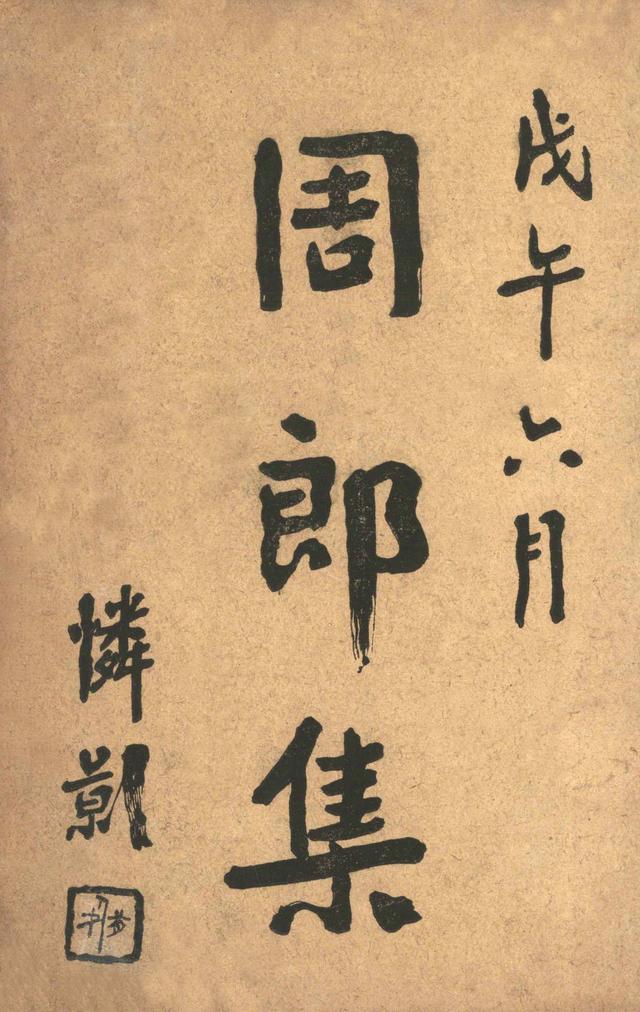 戊午六月
周郎集
憐影